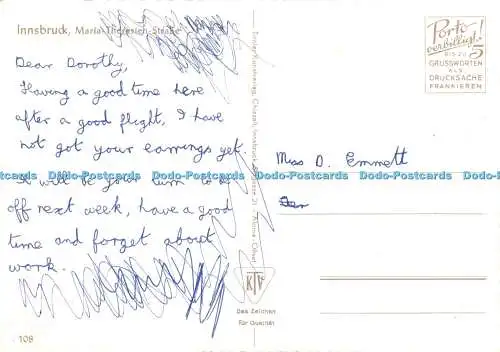 Innsbruck, Maria-Theresien-Straße
Dear Dorothy,
Having a good time here
after a good flight, I have
not got your earrings yet.
It will be your turn to be
off next week, have a good
time and forget about
work.
108
Das Zeichen
für Qualität
KTV
Porto
verbilligt!
BIS ZU 5
GRUSSWORTEN
ALS
DRUCKSACHE
FRANKIEREN
Miss D. Emmett
Dodo-Postcards Dodo-Postcards Dodo-Postcards Dodo-Postcards Dodo-Postcards